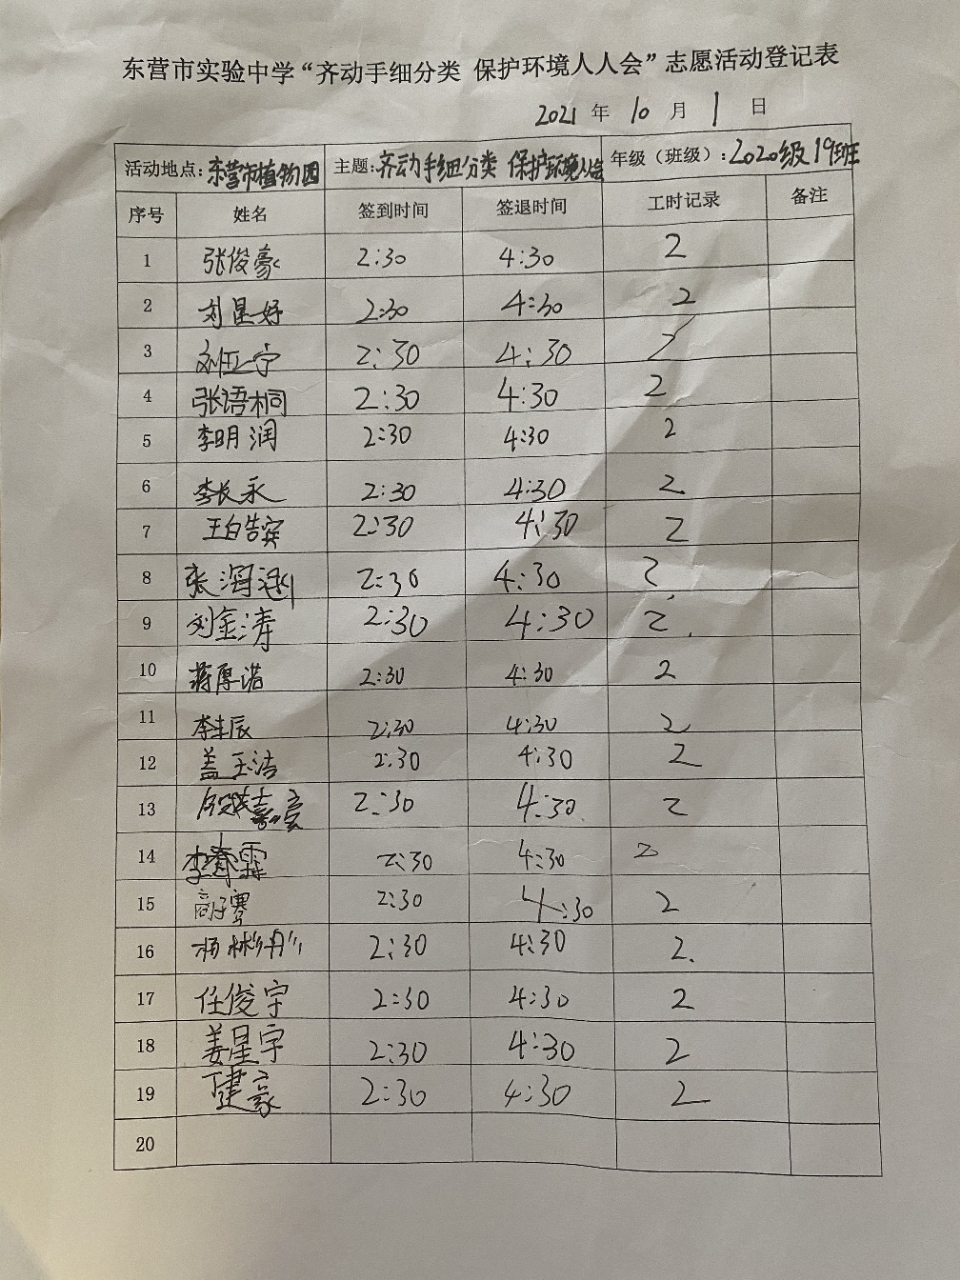 东营市实验中学“齐动手细分类 保护环境人人会”志愿活动登记表
2021 年 10 月 1 日
活动地点:东营市植物园 主题:齐动手细分类 保护环境人人会 年级（班级）:2020级19班
序号 姓名 签到时间 签退时间 工时记录 备注
1 张俊豪 2:30 4:30 2
2 刘星妤 2:30 4:30 2
3 刘 宁 2:30 4:30 2
4 张语桐 2:30 4:30 2
5 李明润 2:30 4:30 2
6 李长永 2:30 4:30 2
7 王白浩宾 2:30 4:30 2
8 张海 2:30 4:30 2
9 刘金涛 2:30 4:30 2
10 蒋厚诺 2:30 4:30 2
11 李 辰 2:30 4:30 2
12 盖玉洁 2:30 4:30 2
13 2:30 4:30 2
14 李 霖 2:30 4:30 2
15 2:30 4:30 2
16 杨彬 2:30 4:30 2.
17 任俊宇 2:30 4:30 2
18 姜星宇 2:30 4:30 2
19 丁建豪 2:30 4:30 2
20